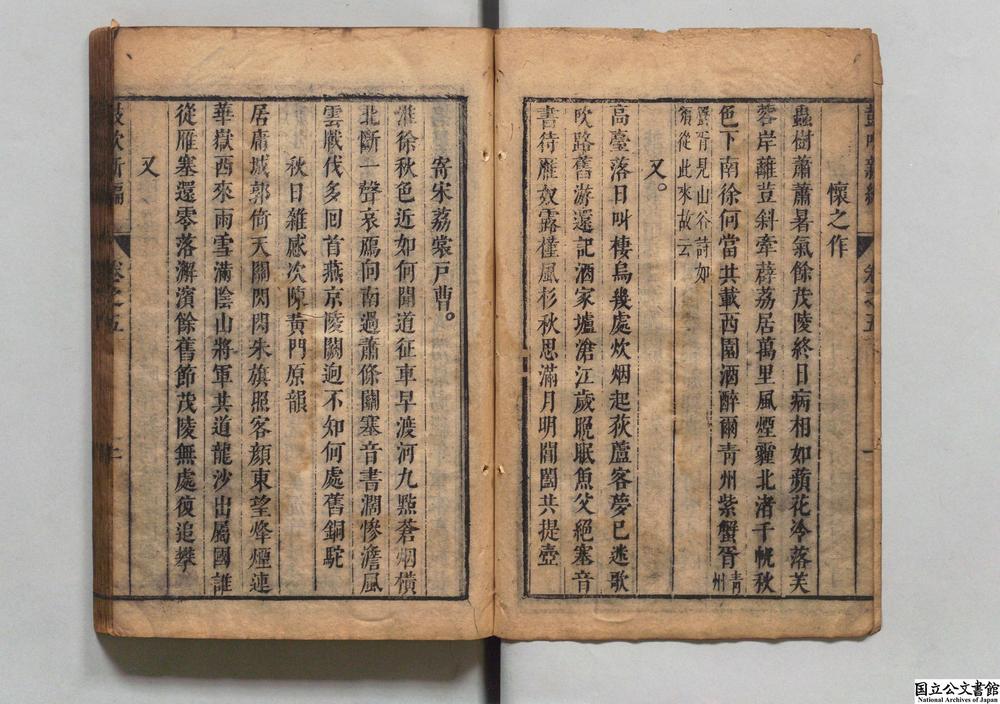 懷之作
蟲樹蕭蕭暑氣餘茂陵終日病相如蘋花冷落芙
蓉岸離荳斜牽薜荔居萬里風煙霾北渚千帆秋
色下南徐何當共載西園酒醉爾青州紫蟹胥青州
蟹胥見山谷詩如
從此來故云
又。
高臺落日叫棲烏幾處炊烟起荻蘆客夢已迷歌
吹路舊游還記酒家壚滄江歲晚眠魚父絕塞音
書待雁奴露槿風杉秋思滿月明閶闔共提壺
寄宋荔裳戸曹。
淮徐秋色近如何聞道征車早渡河九點蒼烟橫
北斷一聲哀鴈向南過蕭條關塞音書濶慘澹風
雲戲伐多回首燕京陵闕逈不知何處舊銅駝
秋日雜感次陳黃門原韻
居庸城郭倚天關閃閃朱旗照客顏東望烽煙連
華嶽西來雨雪滿陰山將軍共道龍沙出屬國誰
從雁塞還零落澥濱餘舊節茂陵無處復追攀
又
卷之五
二
国立公文書館
National Archives of Japan